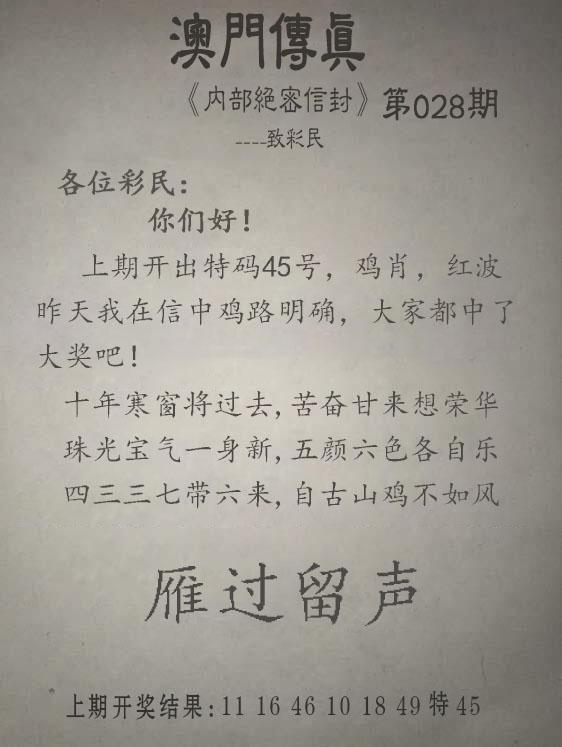 澳門傳真
《内部絕密信封》第028期
----致彩民
各位彩民：
你们好！
上期开出特码45号，鸡肖，红波
昨天我在信中鸡路明确，大家都中了
大奖吧！
十年寒窗将过去,苦奋甘来想荣华
珠光宝气一身新,五颜六色各自乐
四三三七带六来,自古山鸡不如风
雁过留声
上期开奖结果:11 16 46 10 18 49 特 45